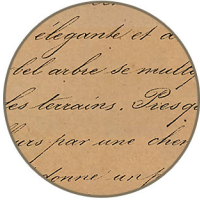 élégante et a
bel arbre se multip
les terrains. Presq
lurs par une che
donne un p